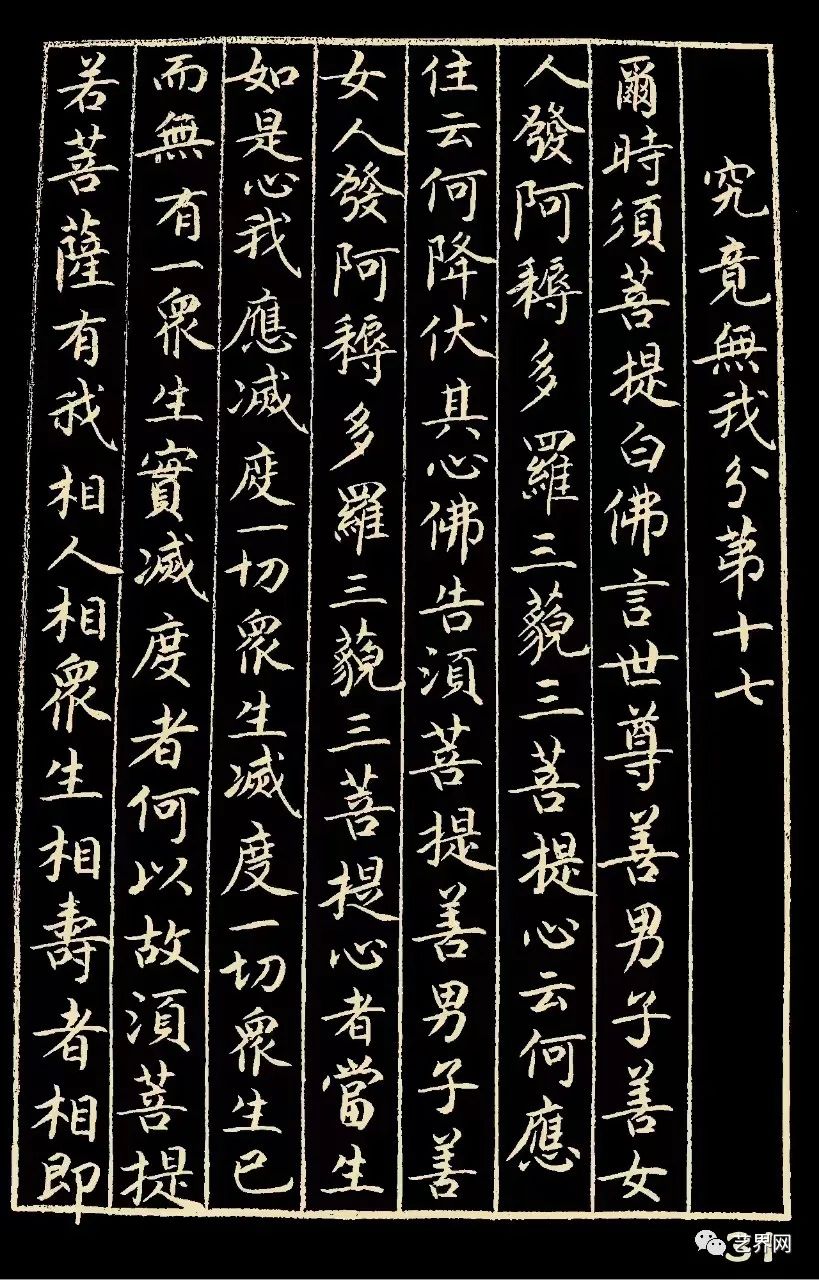 究竟無我分第十七
爾時須菩提白佛言世尊善男子善女
人發阿耨多羅三藐三菩提心云何應
住云何降伏其心佛告須菩提善男子善
女人發阿耨多羅三藐三菩提心者當生
如是心我應滅度一切眾生滅度一切眾生已
而無有一眾生實滅度者何以故須菩提
若菩薩有我相人相眾生相壽者相即
艺界网
31